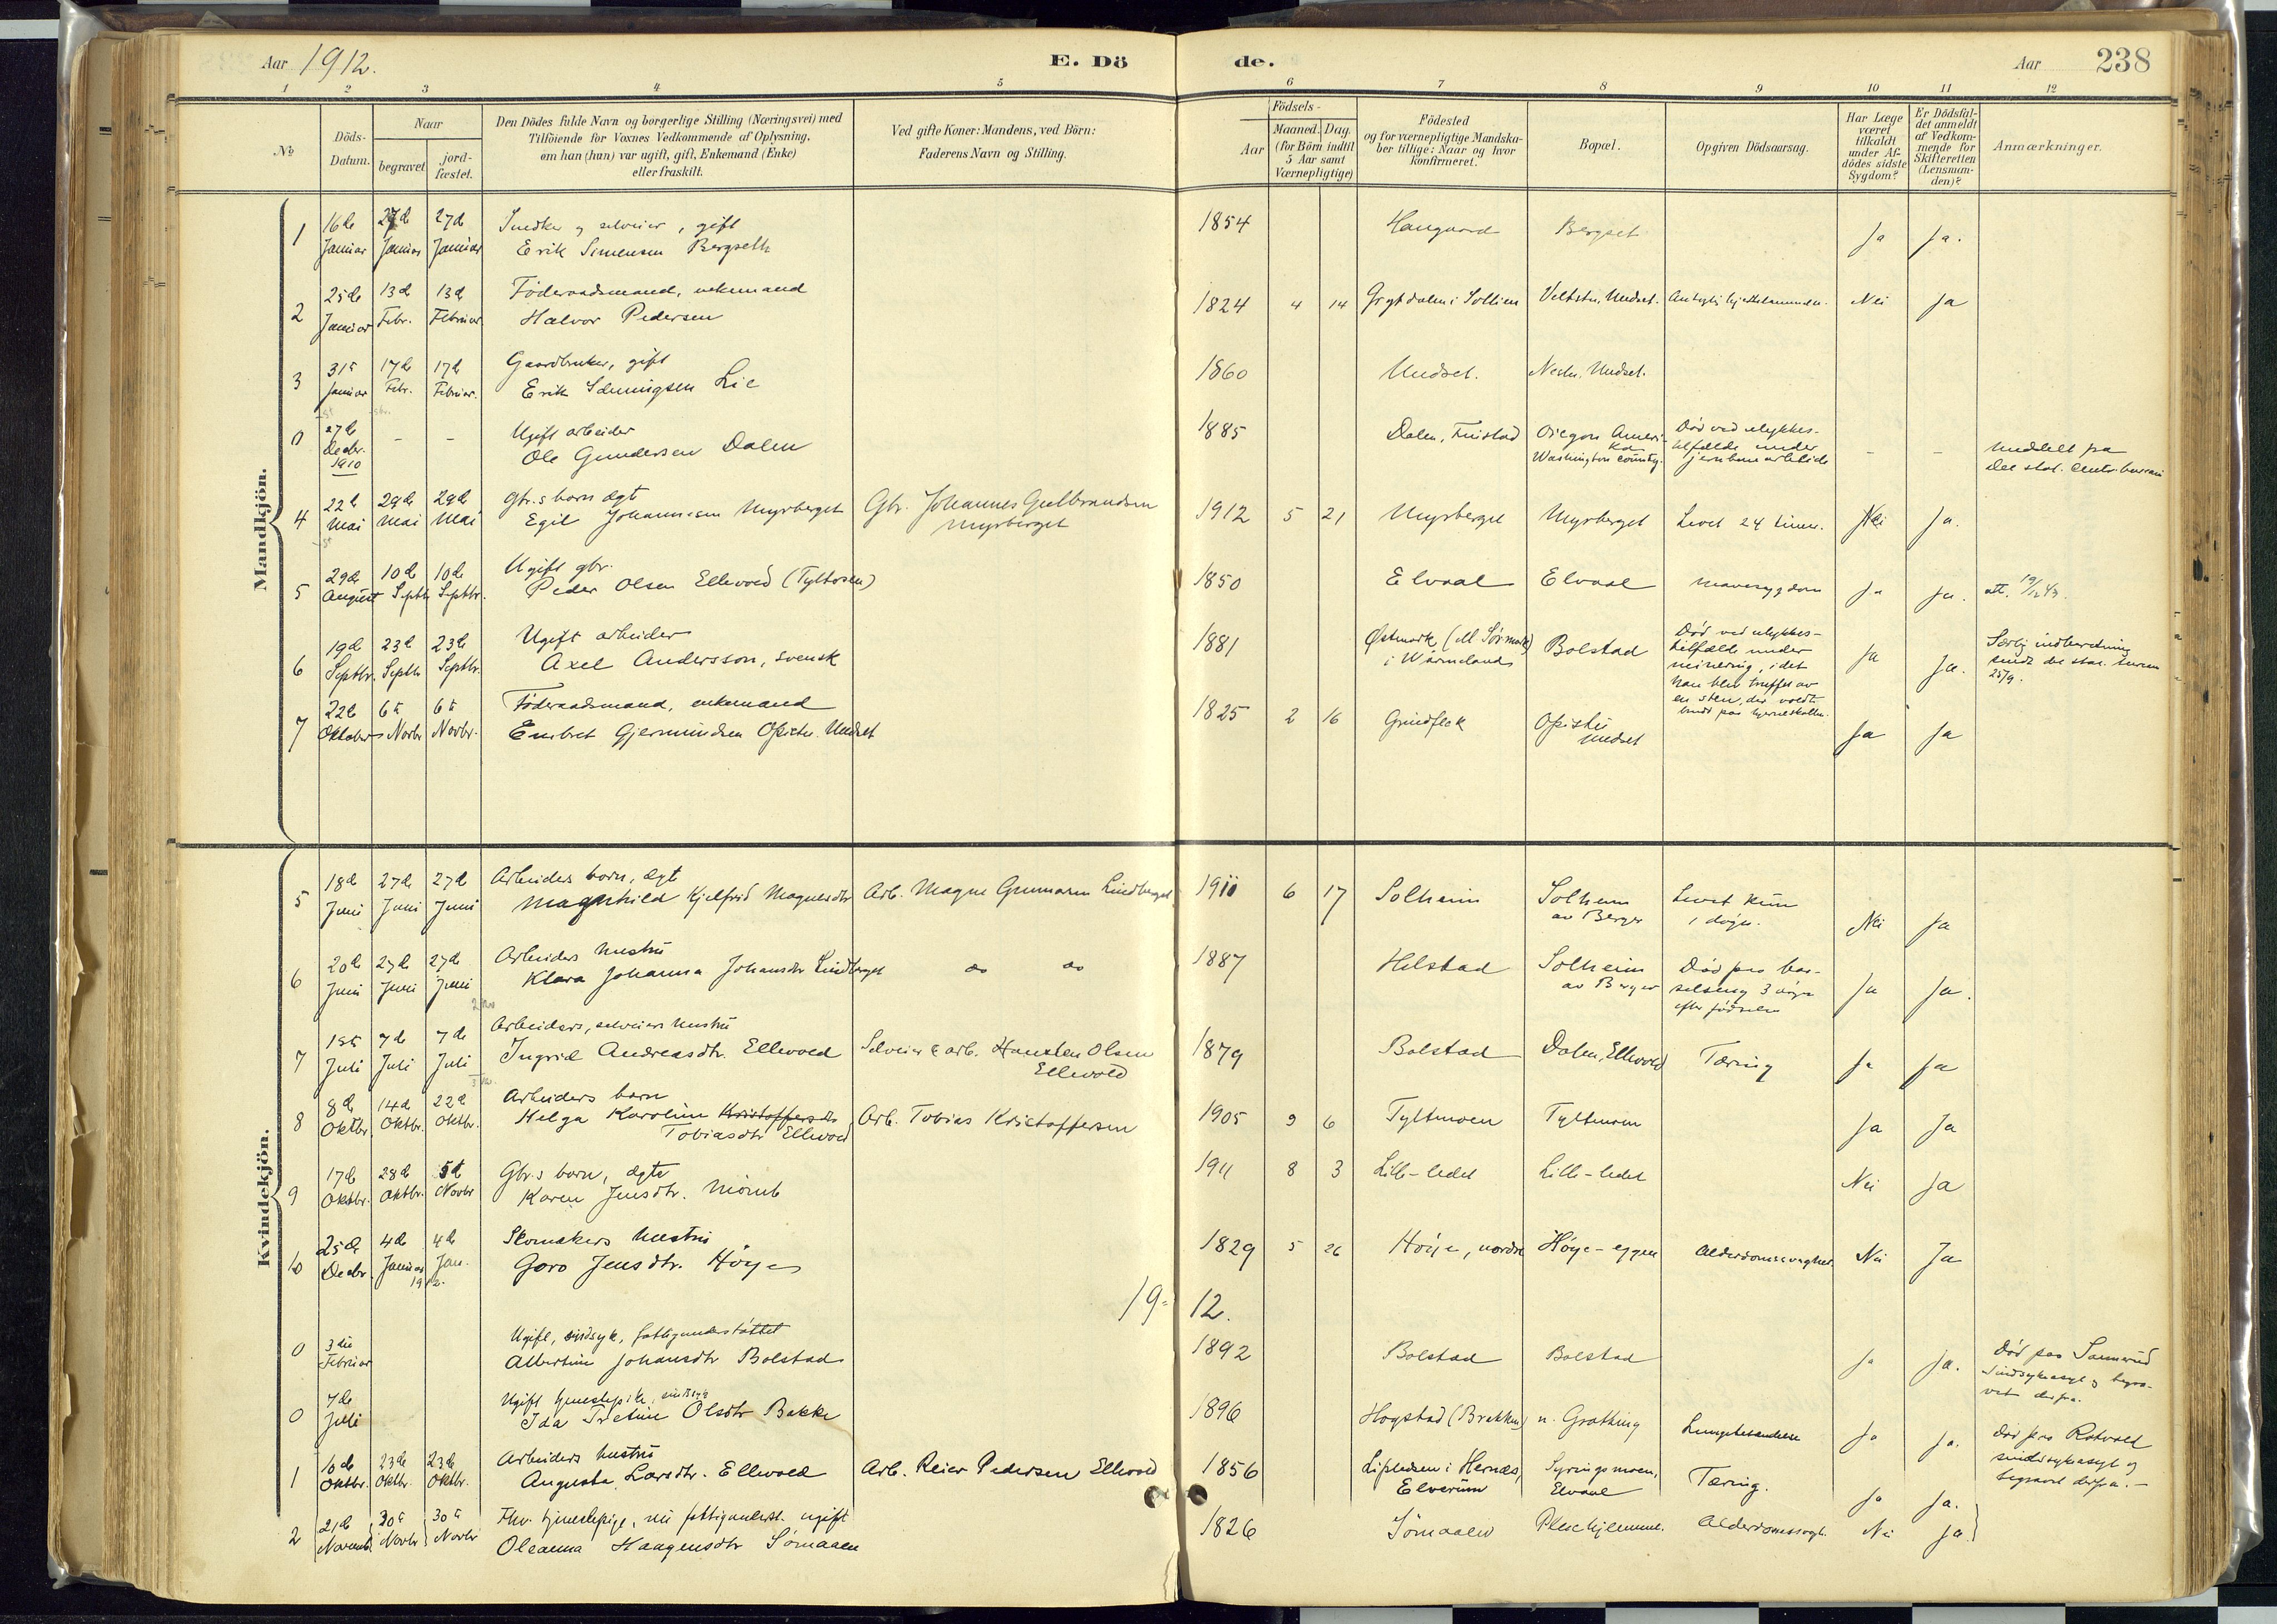 Aar 1912.
E. Dö
de.
Aar 238
1 2 3 4 5 6 7 8 9 10 11 12
No
Döds-Datum.
Naar
begravet
jord-fæstet.
Den Dödes fulde Navn og borgerlige Stilling (Næringsvei) med
Tilföiende for Voxnes Vedkommende af Oplysning,
om han (hun) var ugift, gift, Enkemand (Enke)
eller fraskilt.
Ved gifte Koner: Mandens, ved Börn:
Faderens Navn og Stilling.
Födsels-
Aar
Maaned. Dag.
(for Börn indtil
5 Aar samt
Værnepligtige)
Födested
og for værnepligtige Mandska-
ber tillige: Naar og hvor
konfirmeret.
Bopæl.
Opgiven Dödsaarsag.
Har Læge
været
tilkaldt
under Af-
dödes sidste
Sygdom?
Er Dödsfal-
det anmeldt
af Vedkom-
mende for
Skifteretten
(Lensman-
den)?
Anmærkninger.
Mandkjön.
1 16de Januar 27de Januar 27de Januar
Snedker og selveier, gift
Erik Simensen Bergseth
1854 Haugaard Bergset Ja Ja.
2 25de Januar 13de Febr. 13de Februar
Föderaadsmand, enkemand
Halvor Pedersen
1824 4 14 i Sollien Undset. Nei Ja
3 31te Januar 17de Febr. 17de Februar.
Gaardbruker, gift
Erik Lie
1860 Undset. Undset.
0 27de Decbr. 1910 - -
Ugift arbeider
Ole Gundersen Dalen
1885 Dalen, Oregon Ameri-
ka
Washington county.
Död ved ulykkes-
tilfælde under
jernbanearbeide
- - Meddelt fra
det stat. Centr. bureau
4 22de Mai 29de Mai 29de Mai
Gbr.s barn ægt
Egil Johannesen Myrberget
Gbr. Johannes Gulbrandsen
Myrberget
1912 5 21 Myrberget Myrberget Levet 24 timer. Nei Ja.
5 29de August 10de Septbr. 10de Septbr.
Ugift gbr.
Peder Olsen Ellevold (Tyltmoen)
1850 Elvaal Elvaal Mavesygdom Ja Ja.
6 19de Septbr. 23de Septbr. 23de Septbr.
Ugift arbeider
Axel Andersson, svensk
1881 Østmark,
i Wärmeland
Bolstad
Död ved ulykkes-
tilfælde under
minering, idet
han blev truffet av
en sten, der voldte
brudd paa hjerneskallen.
Ja Ja.
Særlig indberetning
sendt det stat. bureau
25/9.
7 22de Oktober 6te Novbr. 6te Novbr.
Föderaadsmand, enkemand
Embret Gjermundsen Undset
1825 2 16 Grindflek
Undset
Ja Ja
Kvindekjön.
5 18de Juni 27de Juni 27de Juni
Arbeiders barn, ægt
Magnhild Kjelfrid Magnesdtr
Arb. Magne Gunnarsen Lindberget
1911 6 17 Solheim Solheim
av Berger
Levet kun
1 døgn.
Nei Ja
6 20de Juni 27de Juni 27de Juni
Arbeiders hustru
Klara Johanna Johansdtr Lindberget
do do
1887 Helstad Solheim
av Berger
Död paa bar-
selseng 3 døgn
efter födselen
Ja Ja.
7 1ste Juli 7de Juli 7de Juli
Arbeiders, selveiers hustru
Ingrid Andreasdtr. Ellevold
Selveier & arb. Olsen
Ellevold
1879 Bolstad Dalen, Ellevold Tæring Ja Ja
8 8de Oktbr. 14de Oktbr. 22de Oktbr.
Arbeiders barn
Helga Karoline Kristoffersdtr
Tobiasdtr Ellevold
Arb. Tobias Kristoffersen
1905 9 6 Tyltmoen Tyltmoen Ja Ja
9 17de Oktbr. 28de Oktbr. 5te Novbr
Gbr.s barn, ægte
Karen Jensdtr. Mömb
1911 8 3 Lille-ledet Lille-ledet Nei Ja
10 25de Decbr. 4de Januar 4de Jan.
1912.
Skomakers hustru
Goro Jensdtr. Höye
1829 5 26 Höye, nordre Höye-eggen Alderdomssvaghet Nei Ja
19=12.
0 3die Februar
Ugift, sindsyk, fattigunderstöttet
Albertine Johansdtr Bolstad
1892 Bolstad Bolstad Ja Ja.
Död paa Sannerud
Sindsykeasyl og begra-
vet derfra.
0 7de Juli
Ugift tjenestepike, sindssyg
Ida Tretine Olsdtr Bakke
1896 Hogstad (Brekken) n. Grötting Lungebetændelse Ja Ja.
Död paa Rotvoll
sindssykeasyl og
begravet derfra. -
1 10de Oktbr. 23de Oktbr. 23de Oktbr.
Arbeiders hustru
Augusta Larsdtr. Ellevold
Arb. Reier Pedersen Ellevold
1856 i Hernes,
Elverum
Syringsmoen,
Elvaal
Tæring. Ja Ja.
2 21de Novemb. 30te Novbr. 30te Novbr
Fhv. tjenestepige, nu fattigunderst. ugift
Oleanna Haugensdtr Sömaaen
1826 Sömaaen Pleiehjemmet. Alderdomssvagh. Nei Ja.